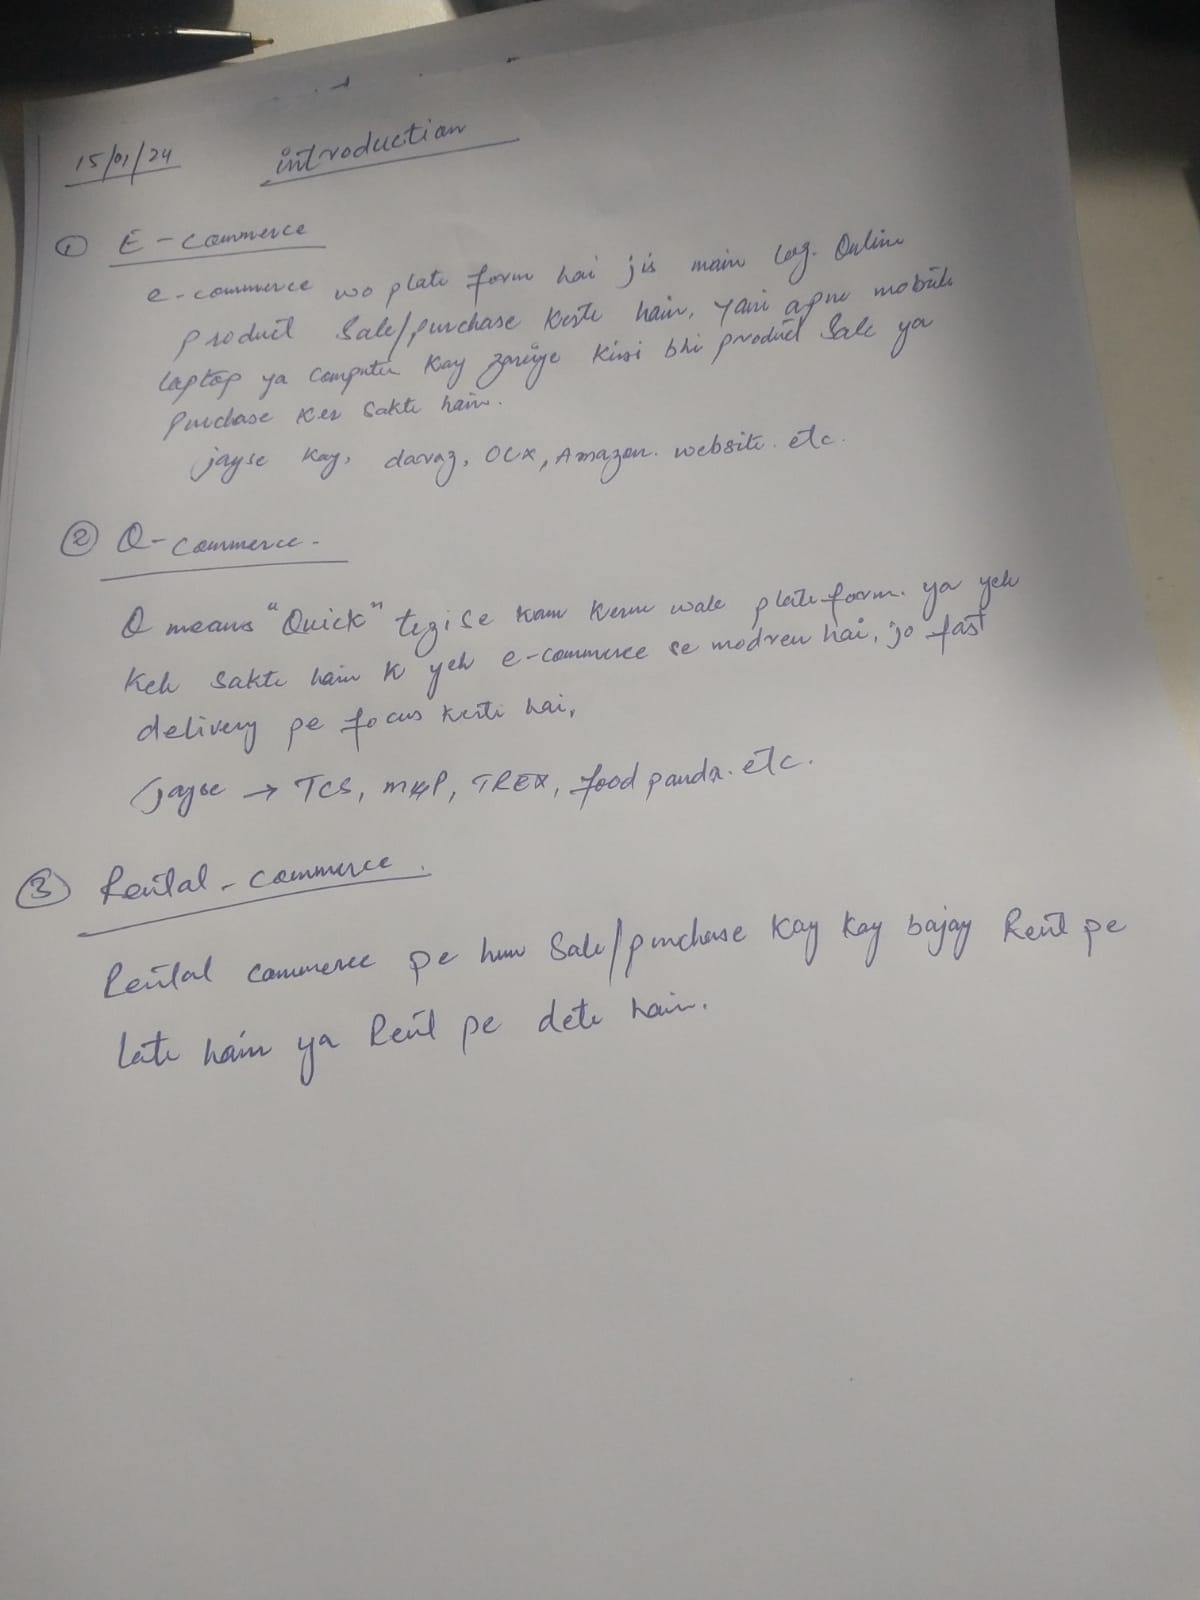 15/01/24 introduction
① E-commerce
e-commerce wo plate form hai jis main log. Online
product Sale/purchase kerte hain, yani apne mobile
laptop ya computer kay zariye kisi bhi product Sale ya
Purchase ker Sakte hain.
jayse kay, daraz, OLX, Amazon. website. etc.
② Q-commerce.
Q means "Quick" tezi se kam kerne wale plate form. ya yeh
keh sakte hain k yeh e-commerce se modren hai, jo fast
delivery pe focus kerti hai,
jayse → TCS, M&P, TREX, food panda. etc.
③ Rental-commerce.
Rental commerce pe hum Sale/purchase kay kay bajay Rent pe
late hain ya Rent pe dete hain.